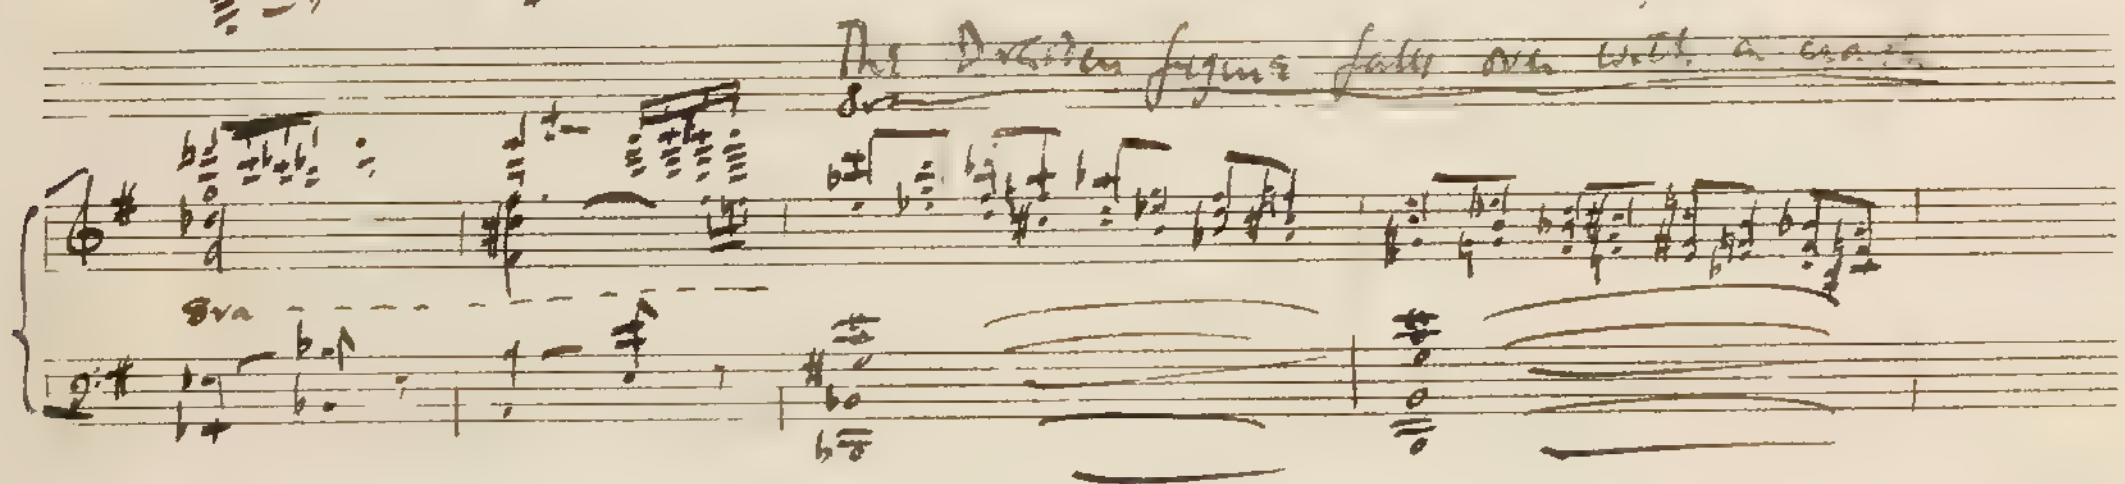 The Dresden figure falls over with a crash
8va
8va